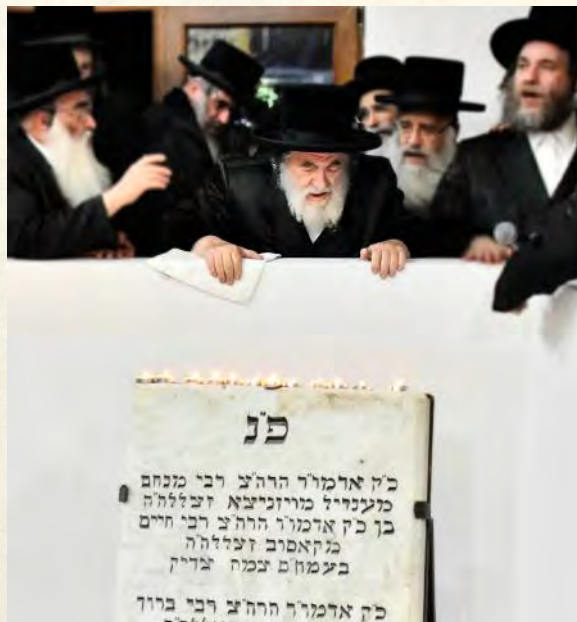 פ"נ
כ"ק אדמו"ר הרה"צ רבי מנחם
מענדיל מויזניצא זצללה"ה
בן כ"ק אדמו"ר הרה"צ רבי חיים
מקאסוב זצללה"ה
בעמח"ס צמח צדיק
כ"ק אדמו"ר הרה"צ רבי ברוך